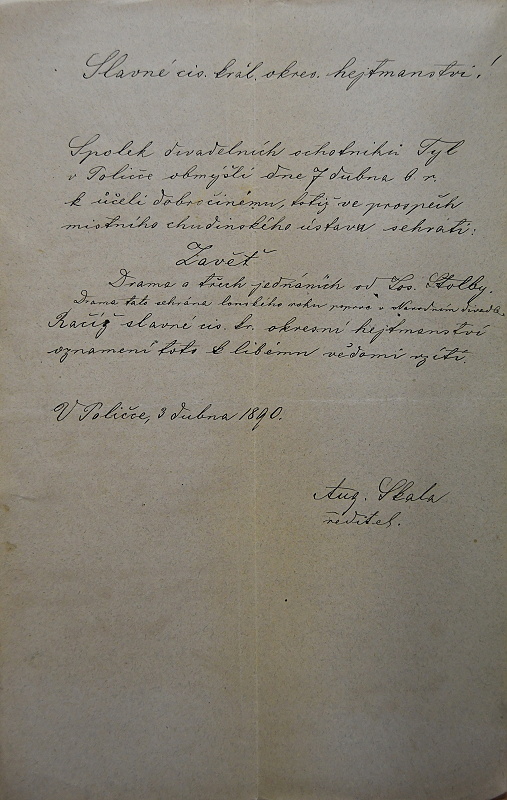 Slavné cis. král. okres. hejtmanství!
Spolek divadelních ochotníků Tyl
v Poličce obmýšlí dne 7 dubna b r.
k účeli dobročinému, totiž ve prospěch
místního chudinského ústavu sehráti:
Závěť
Drama o třech jednáních od Jos. Štolby.
Drama tato sehrána lonského roku poprvé v Národním divadle.
Račiž slavné cis. kr. okresní hejtmanství
oznamení toto k libému vědomí vzíti.
V Poličce, 3 dubna 1890.
Aug. Skala
ředitel.